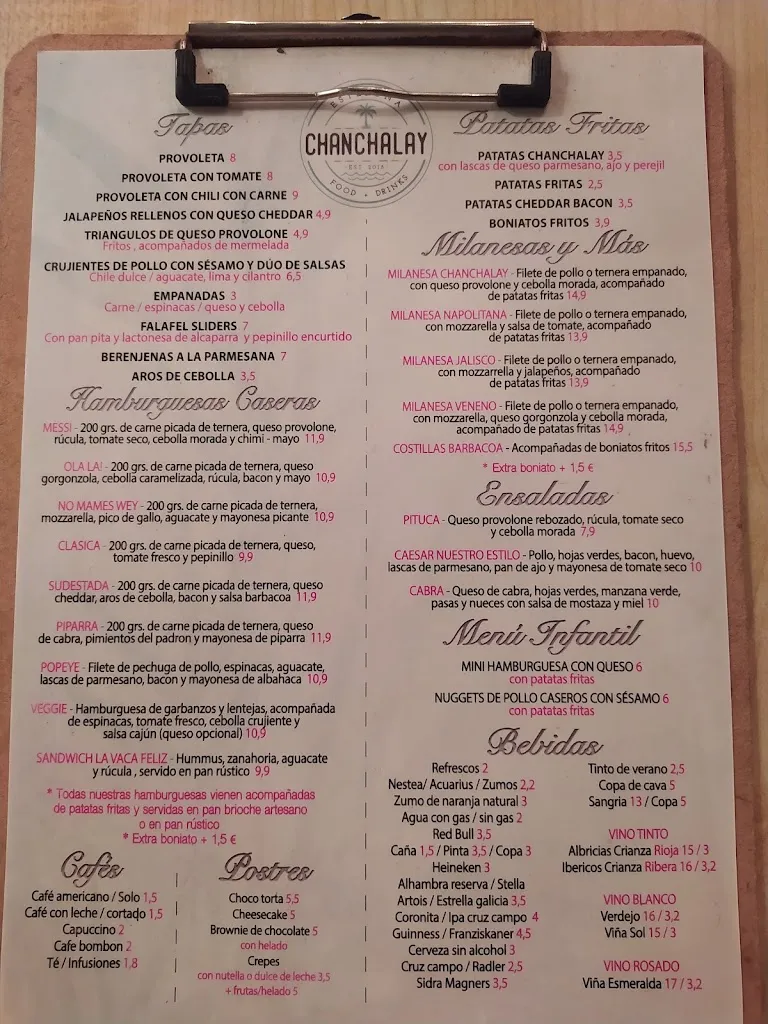 ESTEPONA
CHANCHALAY
EST 2018
FOOD + DRINKS
Tapas
PROVOLETA 8
PROVOLETA CON TOMATE 8
PROVOLETA CON CHILI CON CARNE 9
JALAPEÑOS RELLENOS CON QUESO CHEDDAR 4,9
TRIANGULOS DE QUESO PROVOLONE 4,9
Fritos , acompañados de mermelada
CRUJIENTES DE POLLO CON SÉSAMO Y DÚO DE SALSAS
Chile dulce / aguacate, lima y cilantro 6,5
EMPANADAS 3
Carne / espinacas / queso y cebolla
FALAFEL SLIDERS 7
Con pan pita y lactonesa de alcaparra y pepinillo encurtido
BERENJENAS A LA PARMESANA 7
AROS DE CEBOLLA 3,5
Hamburguesas Caseras
MESSI - 200 grs. de carne picada de ternera, queso provolone,
rúcula, tomate seco, cebolla morada y chimi - mayo 11,9
OLA LA! - 200 grs. de carne picada de ternera, queso
gorgonzola, cebolla caramelizada, rúcula, bacon y mayo 10,9
NO MAMES WEY - 200 grs. de carne picada de ternera,
mozzarella, pico de gallo, aguacate y mayonesa picante 10,9
CLASICA - 200 grs. de carne picada de ternera, queso,
tomate fresco y pepinillo 9,9
SUDESTADA - 200 grs. de carne picada de ternera, queso
cheddar, aros de cebolla, bacon y salsa barbacoa 11,9
PIPARRA - 200 grs. de carne picada de ternera, queso
de cabra, pimientos del padron y mayonesa de piparra 11,9
POPEYE - Filete de pechuga de pollo, espinacas, aguacate,
lascas de parmesano, bacon y mayonesa de albahaca 10,9
VEGGIE - Hamburguesa de garbanzos y lentejas, acompañada
de espinacas, tomate fresco, cebolla crujiente y
salsa cajún (queso opcional) 10,9
SANDWICH LA VACA FELIZ - Hummus, zanahoria, aguacate
y rúcula , servido en pan rústico 9,9
* Todas nuestras hamburguesas vienen acompañadas
de patatas fritas y servidas en pan brioche artesano
o en pan rústico
* Extra boniato + 1,5 €
Cafés
Café americano / Solo 1,5
Café con leche / cortado 1,5
Capuccino 2
Cafe bombon 2
Té / Infusiones 1,8
Postres
Choco torta 5,5
Cheesecake 5
Brownie de chocolate 5
con helado
Crepes
con nutella o dulce de leche 3,5
+ frutas/helado 5
Patatas Fritas
PATATAS CHANCHALAY 3,5
con lascas de queso parmesano, ajo y perejil
PATATAS FRITAS 2,5
PATATAS CHEDDAR BACON 3,5
BONIATOS FRITOS 3,9
Milanesas y Más
MILANESA CHANCHALAY - Filete de pollo o ternera empanado,
con queso provolone y cebolla morada, acompañado
de patatas fritas 14,9
MILANESA NAPOLITANA - Filete de pollo o ternera empanado,
con mozzarella y salsa de tomate, acompañado
de patatas fritas 13,9
MILANESA JALISCO - Filete de pollo o ternera empanado,
con mozzarrella y jalapeños, acompañado
de patatas fritas 13,9
MILANESA VENENO - Filete de pollo o ternera empanado,
con mozzarella, queso gorgonzola y cebolla morada,
acompañado de patatas fritas 14,9
COSTILLAS BARBACOA - Acompañadas de boniatos fritos 15,5
* Extra boniato + 1,5 €
Ensaladas
PITUCA - Queso provolone rebozado, rúcula, tomate seco
y cebolla morada 7,9
CAESAR NUESTRO ESTILO - Pollo, hojas verdes, bacon, huevo,
lascas de parmesano, pan de ajo y mayonesa de tomate seco 10
CABRA - Queso de cabra, hojas verdes, manzana verde,
pasas y nueces con salsa de mostaza y miel 10
Menú Infantil
MINI HAMBURGUESA CON QUESO 6
con patatas fritas
NUGGETS DE POLLO CASEROS CON SÉSAMO 6
con patatas fritas
Bebidas
Refrescos 2
Nestea/ Acuarius / Zumos 2,2
Zumo de naranja natural 3
Agua con gas / sin gas 2
Red Bull 3,5
Caña 1,5 / Pinta 3,5 / Copa 3
Heineken 3
Alhambra reserva / Stella
Artois / Estrella galicia 3,5
Coronita / Ipa cruz campo 4
Guinness / Franziskaner 4,5
Cerveza sin alcohol 3
Cruz campo / Radler 2,5
Sidra Magners 3,5
Tinto de verano 2,5
Copa de cava 5
Sangria 13 / Copa 5
VINO TINTO
Albricias Crianza Rioja 15 / 3
Ibericos Crianza Ribera 16 / 3,2
VINO BLANCO
Verdejo 16 / 3,2
Viña Sol 15 / 3
VINO ROSADO
Viña Esmeralda 17 / 3,2